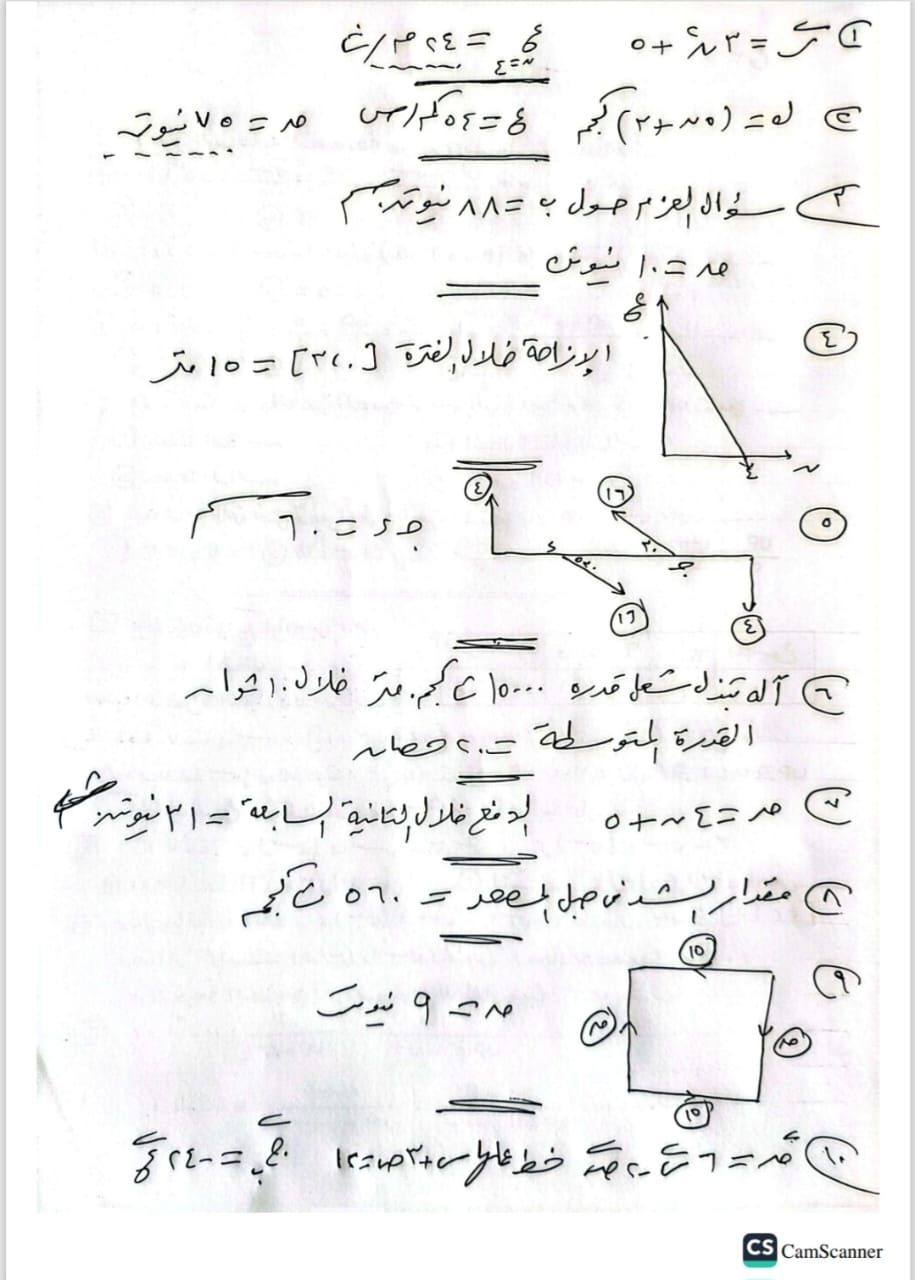 ١ س = ٣ن٢ + ٥ ع ن=٤ = ٢٤ م/ث
٢ ك = (٥ن + ٣) كجم ع = ٥٤ كم/س ق = ٧٥ نيوتن
٣ سؤال العزم حول ب = ٨٨ نيوتن.سم
ق = ١٠ نيوتن
٤ ع
الإزاحة خلال الفترة [٣،٠] = ١٥ متر
ن ٤
٥ ٤ ١٦ ٣٠ جـ ء ٣٠ ١٦ ٤ جـ ء = ٦٠ سم
٦ آلة تبذل شغل قدره ١٥٠٠٠ ث كجم.متر خلال ١٠ ثوان
القدرة المتوسطة = ٢٠ حصان
٧ ق = ٤ن + ٥ الدفع خلال الثانية السابعة = ٣١ نيوتن.ث
٨ مقدار الشد في حبل المصعد = ٥٦٠ ث كجم
٩ ١٥ ق ق ١٥
ق = ٩ نيوتن
١٠ ق = ٦س - ٢ص خط عملها س + ٣ص = ١٢ جـ ب = -٢٤ ع
CS CamScanner